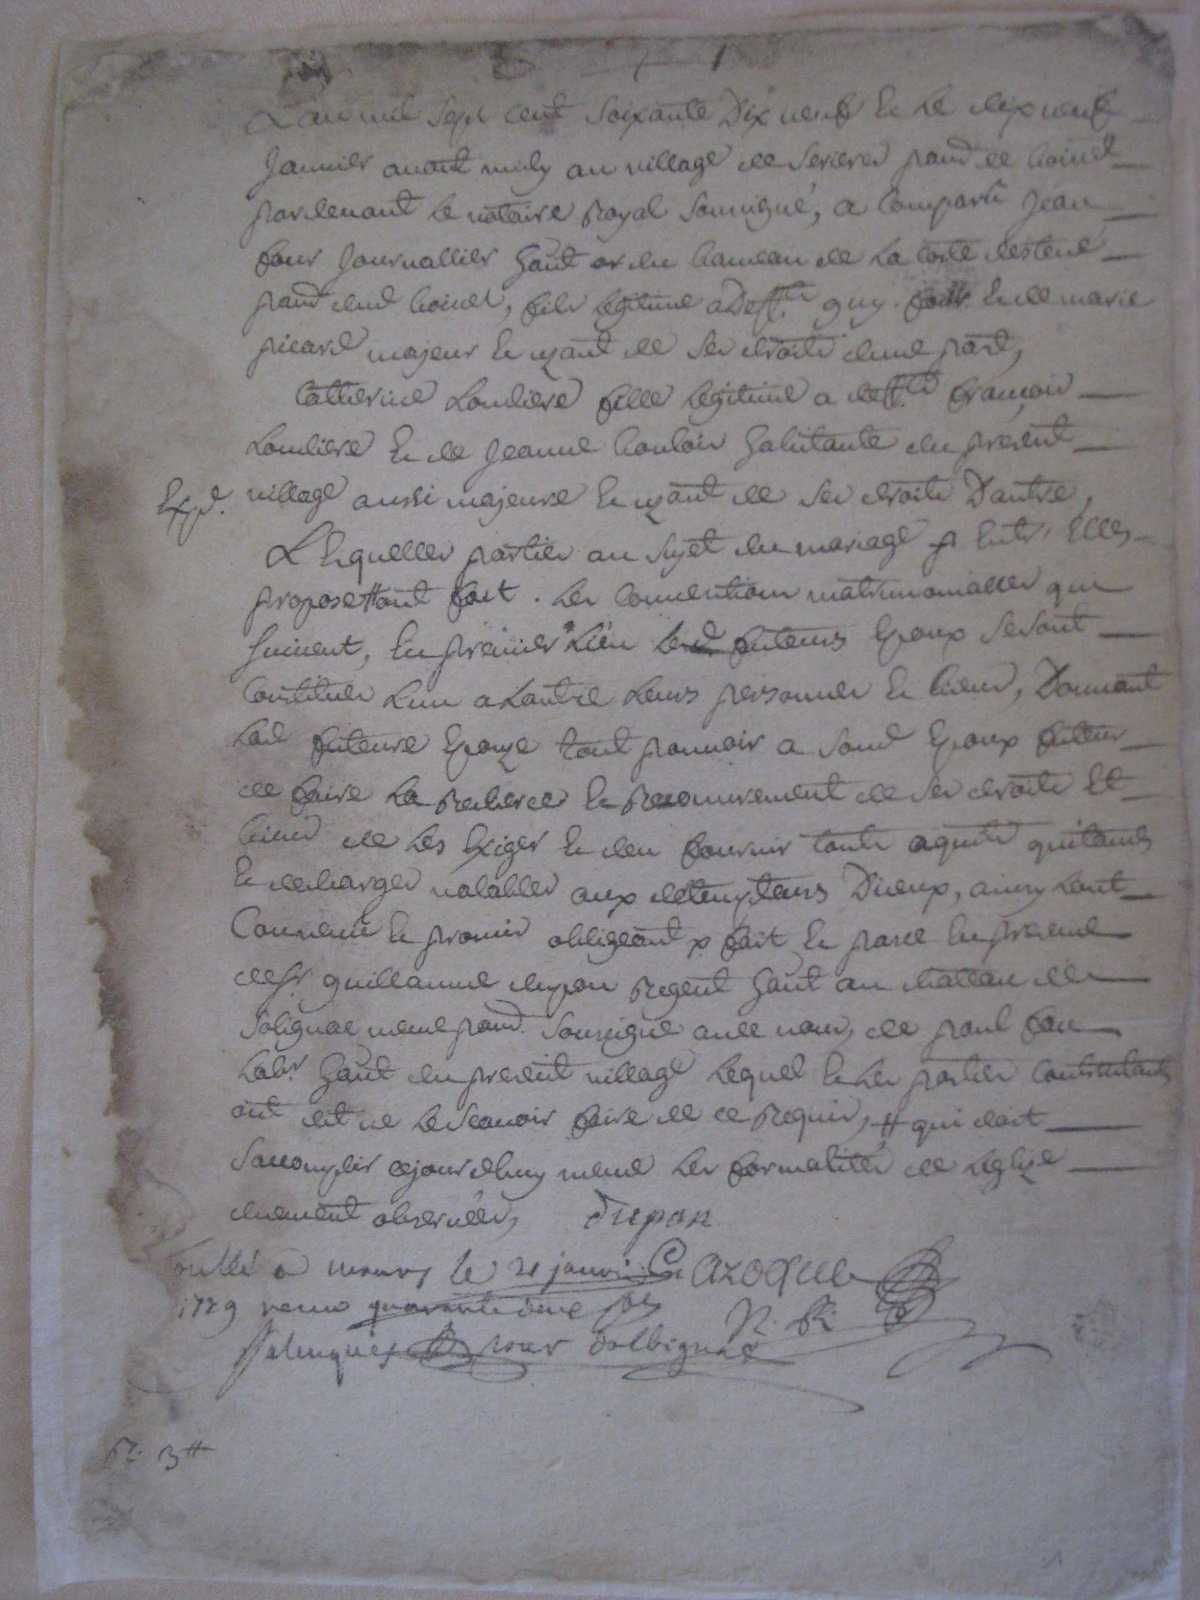 L'an mil sept cent soixante Dix neuf & le dix neuf
Janvier avant midy au village de Serieres par.d de boisset
pardevant le notaire Royal soussigné, a Comparu Jean
four Journallier hant au hameau de La coste
par.d dud boisset, fils legitime a deff.ts guy four & de marie
picard majeur & uzant de ses droits d'une part,
Catherine Loudiere fille Legitime a deff.ts francois
Loudiere & de Jeanne habitante du present
Exp.é village aussi majeure & uzant de ses droits D'autre,
Lesquelles parties au sujet du mariage p Entr' Elles
proposé ont fait les Conventions matrimonialles qui
suivent, En premier Lieu futeurs Epoux se sont
Constitués L'un a L'autre Leurs personnes & biens, Donnant
Lad futeure Epouze tout pouvoir a sond Epoux futeur
de faire La Recherce & Recouvrement de ses droits Et
biens de Les Exiger & d'en fournir toute aquits quitances
& decharges valables aux detempteurs D'iceux, ainsy L'ont
Convenu & promis obligeant p fait & passé En presence
de S.r guillaume dupon Regent hant au chateau de
Solignac meme par.d soussigné avec nous, de paul
Lab.r hant du present village Lequel & Les parties Contractants
ont dit ne Le scavoir faire de ce Requis, # qui doit
s'accomplir cejourdhuy meme Les formalités de L'eglize
duement observées, Dupon
a maurs le 21 janvier Cazoque
1779 recu quarante deux sols N. R.
pour Dolbignac
R. 3 #